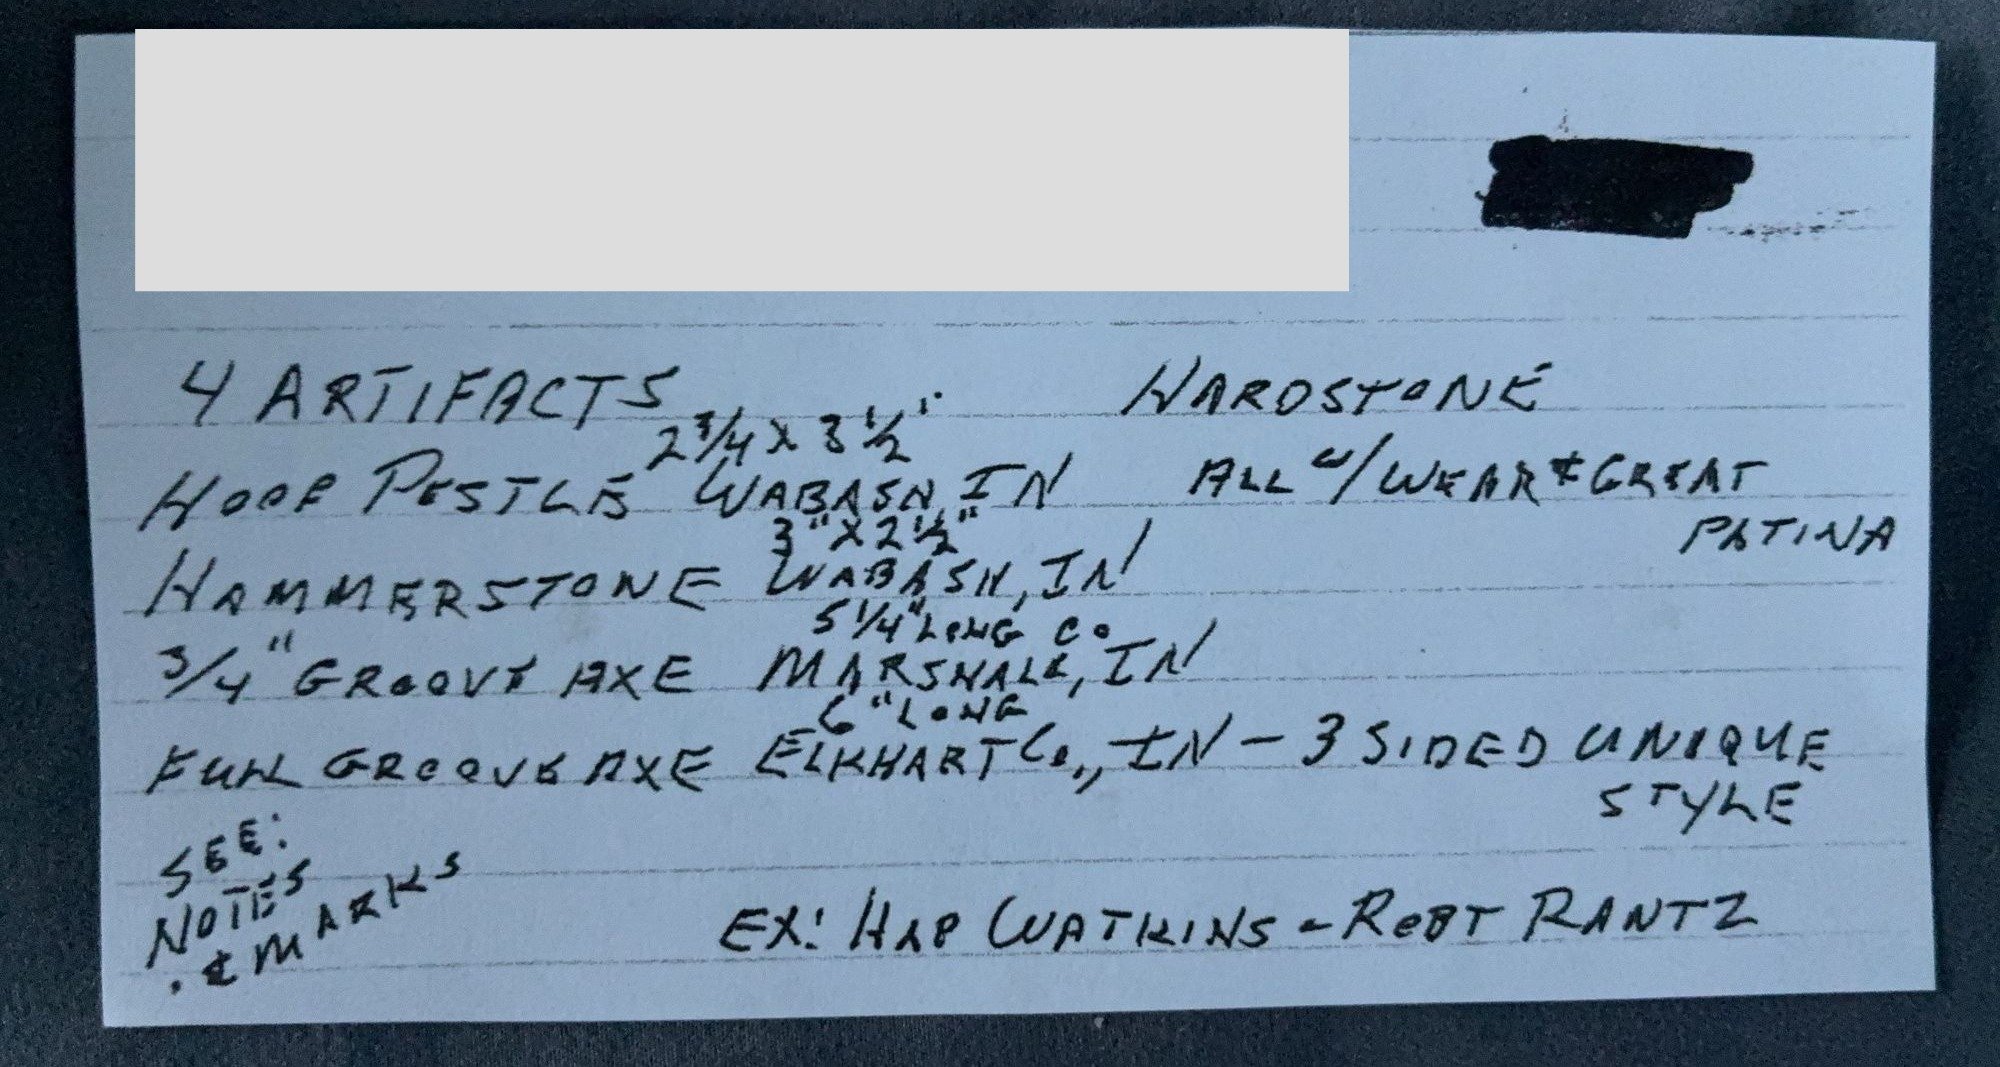 4 ARTIFACTS HARDSTONE
2 3/4 X 3 1/2"
HOOF PESTLE WABASH, IN ALL W/WEAR & GREAT
PATINA
3" X 2 1/2"
HAMMERSTONE WABASH, IN
5 1/4" LONG CO
3/4" GROOVE AXE MARSHALL, IN
6" LONG
FULL GROOVE AXE ELKHART Co., IN - 3 SIDED UNIQUE
STYLE
SEE:
NOTES
. & MARKS
EX: HAP WATKINS - ROBT RANTZ